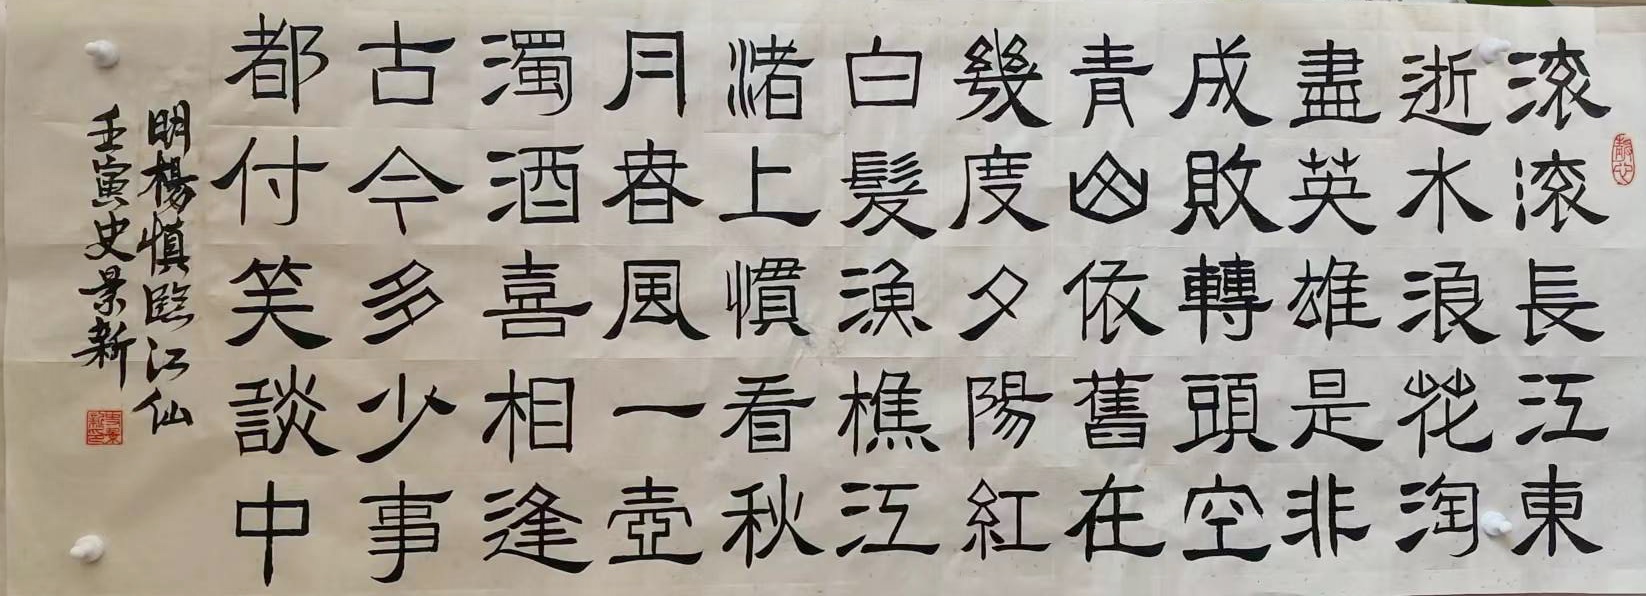 滚滚長江東
逝水浪花淘
盡英雄是非
成敗轉頭空
青山依舊在
幾度夕陽紅
白髮漁樵江
渚上慣看秋
月春風一壺
濁酒喜相逢
古今多少事
都付笑談中
明楊慎臨江仙
壬寅史景新